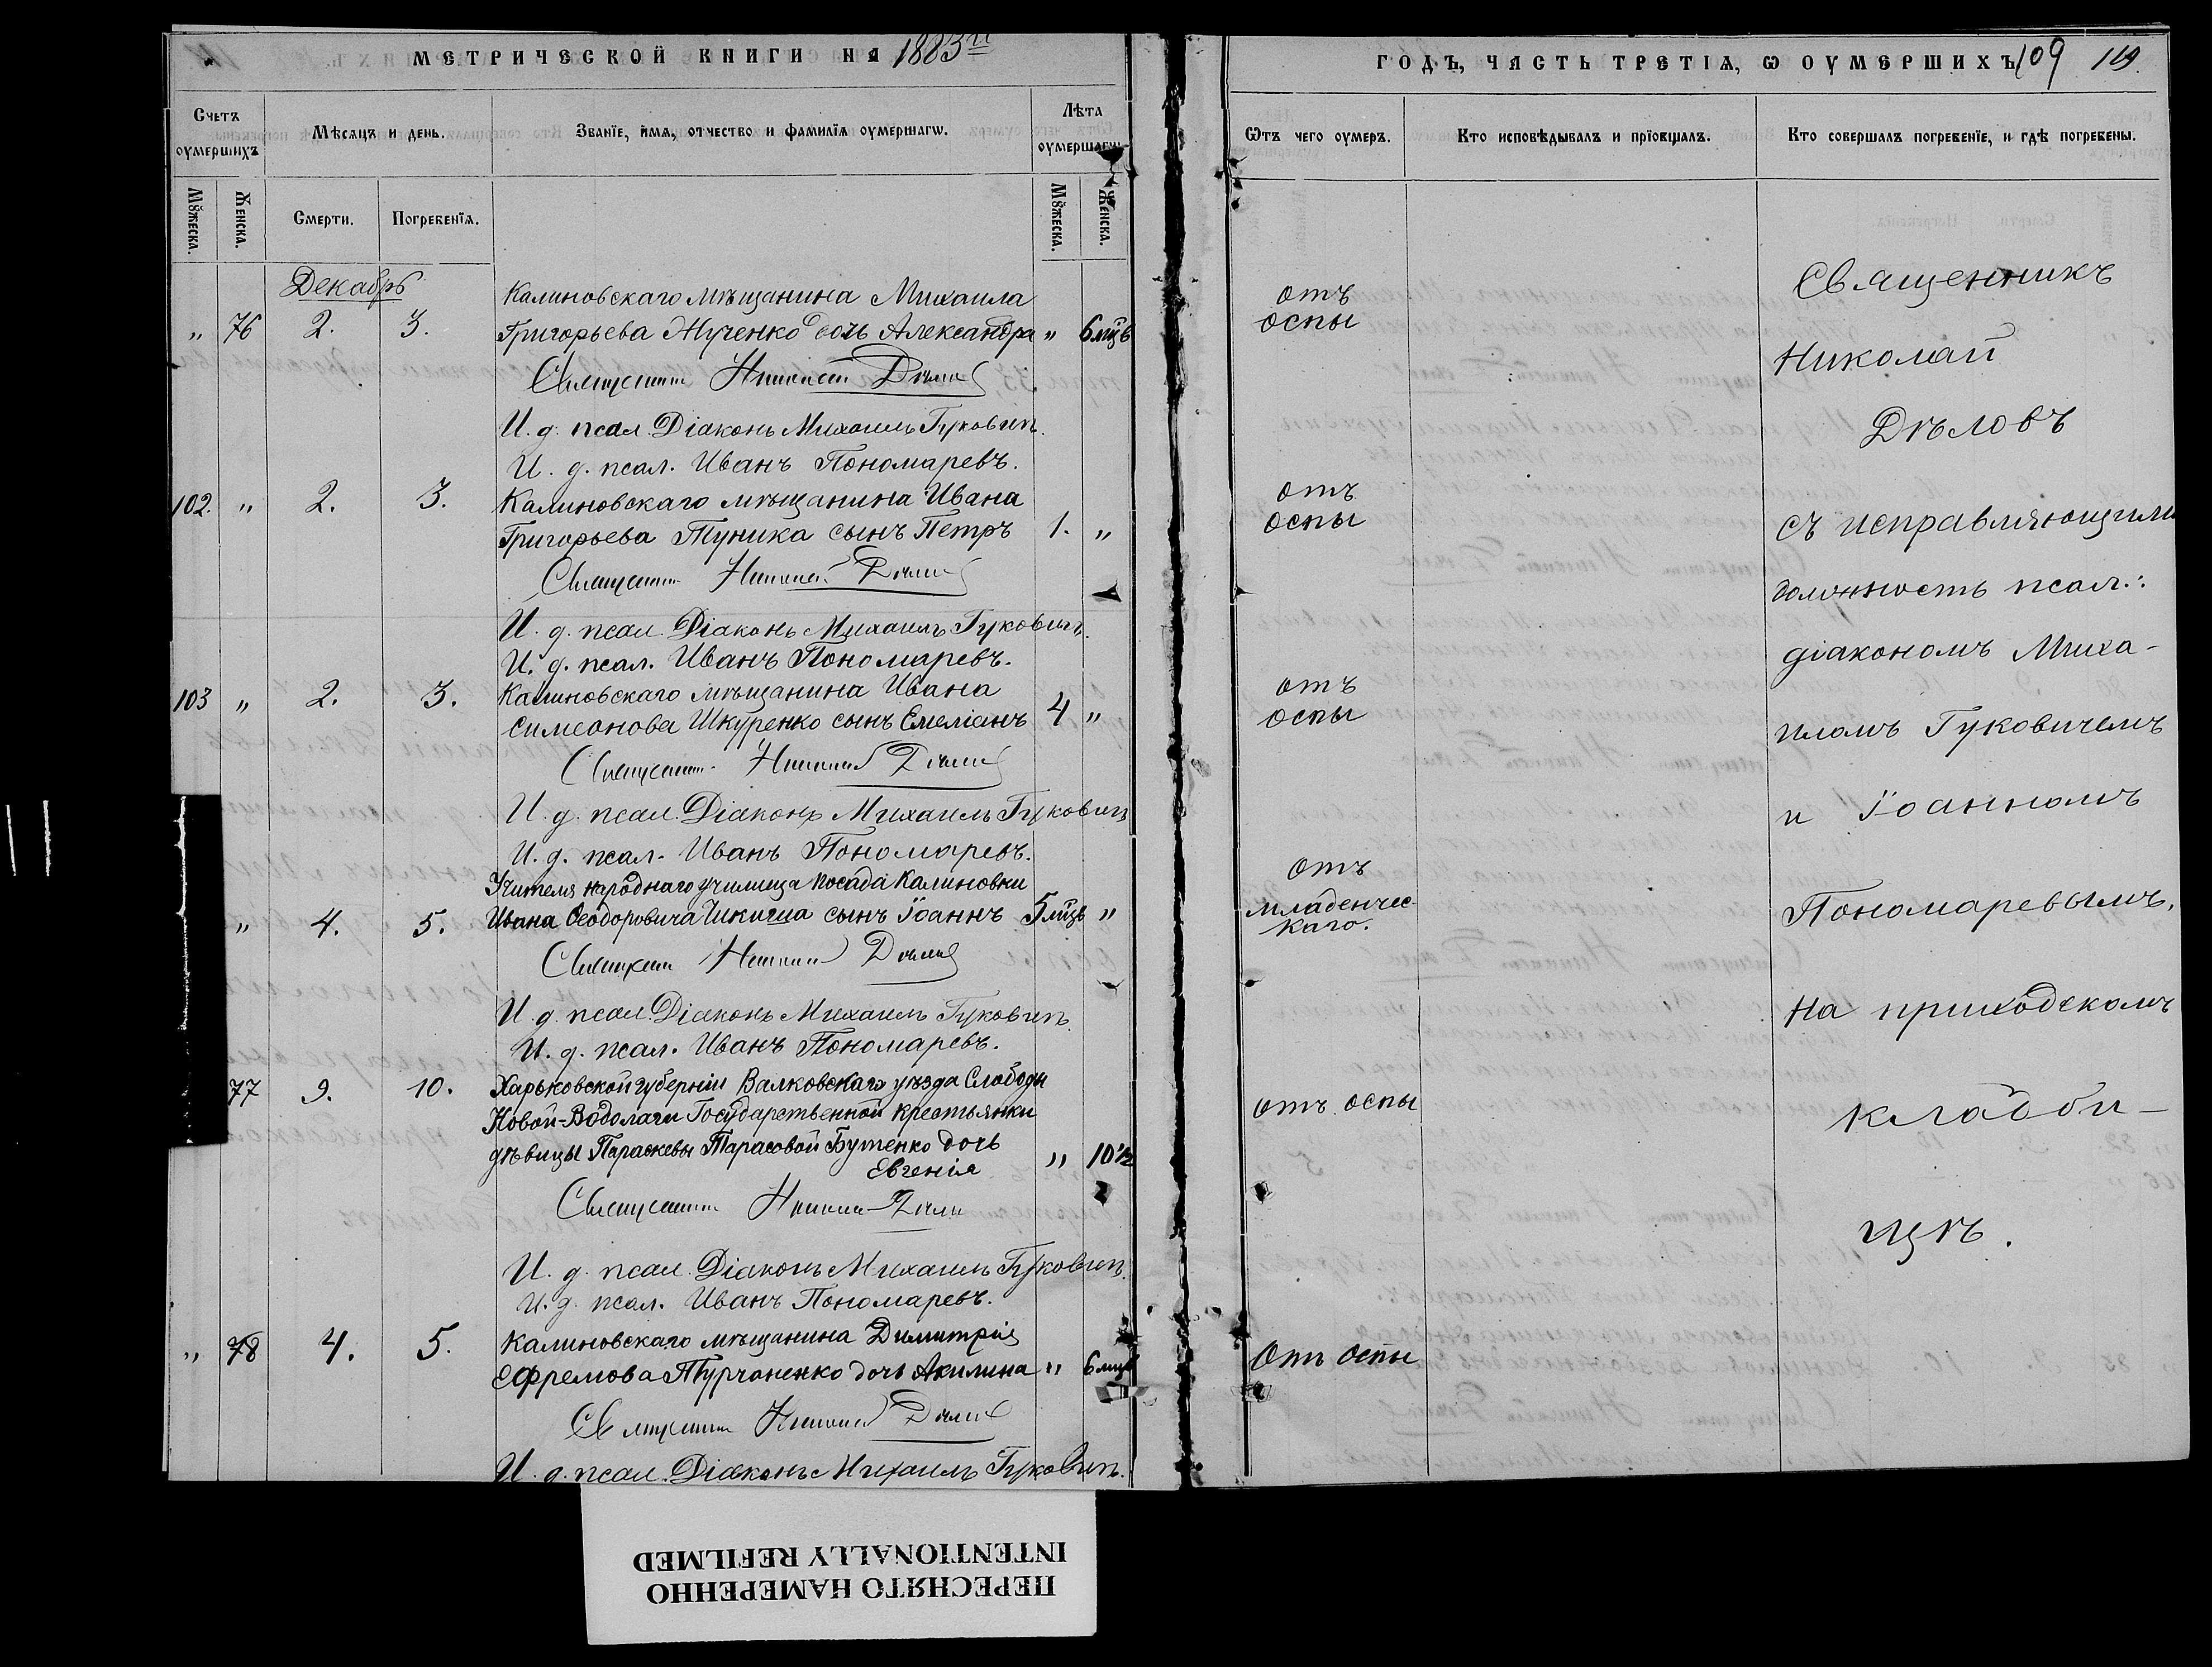 МЕТРИЧЕСКОЙ КНИГИ НА 1883й
ГОДЪ, ЧАСТЬ ТРЕТІѦ, Ѡ ОУМЕРШИХЪ 109
Счетъ оумершихъ
Мѣсяцъ и день.
Званїе, имѧ, отчество и фамилїѧ оумершагѡ.
Лѣта оумершагѡ
Ѿтъ чего оумеръ.
Кто исповѣдывалъ и прїобщалъ.
Кто совершалъ погребенїе, и гдѣ погребены.
Мꙋжеска.
Женска.
Смерти.
Погребенїѧ.
Мꙋжеска.
Женска.
Декабрь
Калиновскаго мѣщанина Михаила
" 76 2. 3. Григорьева Мученко дочь Александра " 6 мцѣ
отъ
оспы
Священникъ Николай Дѣловъ
И. д. псал. Діаконъ Михаилъ Гуковичъ.
И. д. псал. Иванъ Пономаревъ.
102. " 2. 3. Калиновскаго мѣщанина Ивана
Григорьева Туника сынъ Петръ 1. "
отъ
оспы
Священникъ Николай Дѣловъ
И. д. псал. Діаконъ Михаилъ Гуковичъ.
И. д. псал. Иванъ Пономаревъ.
103 " 2. 3. Калиновскаго мѣщанина Ивана
Симеонова Шкуренко сынъ Емеліанъ 4 "
отъ
оспы
Священникъ Николай Дѣловъ
И. д. псал. Діаконъ Михаилъ Гуковичъ
И. д. псал. Иванъ Пономаревъ.
Учителя народнаго училища посада Калиновки
" 4. 5. Ивана Ѳеодоровича сынъ Іоаннъ 5 мцѣ "
отъ
младенчес-
каго.
Священникъ Николай Дѣловъ
И. д. псал. Діаконъ Михаилъ Гуковичъ.
И. д. псал. Иванъ Пономаревъ.
77 9. 10. Харьковской губерніи Валковскаго уѣзда Слободы
Новой-Водолаги Государственной крестьянки
дѣвицы Параскевы Тарасовой Бутенко дочь
Евгенія " 10
отъ оспы
Священникъ Николай Дѣловъ
И. д. псал. Діаконъ Михаилъ Гуковичъ.
И. д. псал. Иванъ Пономаревъ.
" 78 4. 5. Калиновскаго мѣщанина Димитрія
Ефремова Турчаненко дочь Акилина " 6 мцѣ
Отъ оспы
Священникъ Николай Дѣловъ
И. д. псал. Діаконъ Михаилъ Гуковичъ.
Священникъ
Николай
Дѣловъ
съ исправляющими
должность псал.:
діакономъ Миха-
иломъ Гуковичемъ
и Іоанномъ
Пономаревымъ.
На приходскомъ
кладби-
щѣ.
ПЕРЕСНЯТО НАМЕРЕННО
INTENTIONALLY REFILMED